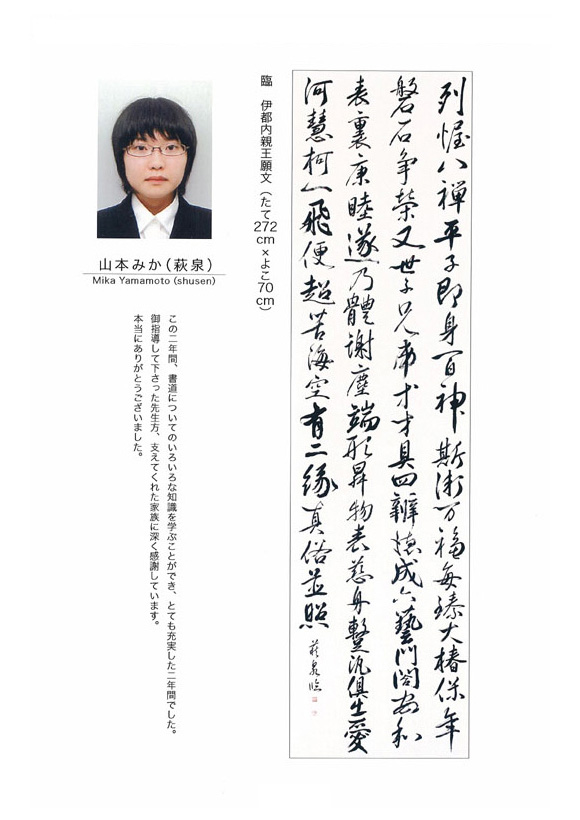 列惺八禅平子即身百神斯衛万福毎臻大椿保年
磐石争榮又世子兄弟才才具四辨徳成六藝門閤安和
表裏康睦遂乃體謝塵端形昇物表慈舟蹔汎俱生愛
河慧柯一飛便超苦海空有二縁真俗並照
萩泉臨
臨　伊都内親王願文（たて272cm×よこ70cm）
山本みか（萩泉）
Mika Yamamoto (shusen)
この二年間、書道についてのいろいろな知識を学ぶことができ、とても充実した二年間でした。
御指導して下さった先生方、支えてくれた家族に深く感謝しています。
本当にありがとうございました。